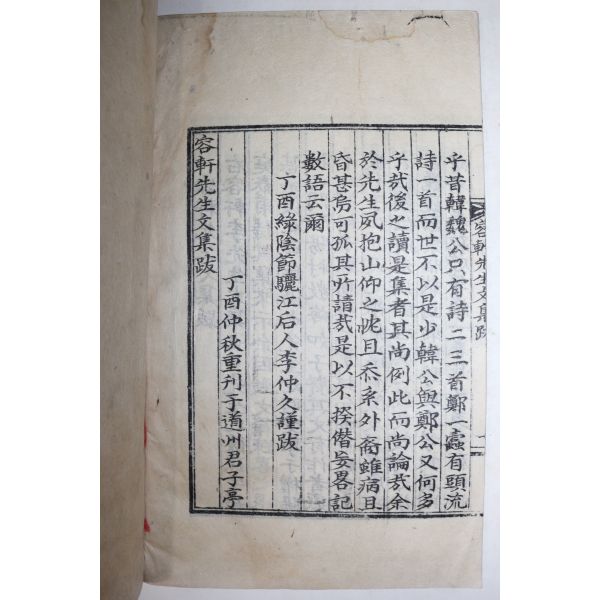 容軒先生文集跋
乎昔韓魏公只有詩二三首鄭一蠹有頭流
詩一首而世不以是少韓公與鄭公又何多
乎㢤後之讀是集者其尚例此而尚論㢤余
於先生夙抱山仰之忱且忝系外裔雖病且
昏甚烏可孤其所請㢤是以不揆僭妄畧記
數語云爾
丁酉綠陰節驪江后人李仲久謹跋
丁酉仲秋重刊于道州君子亭
容軒先生文集跋